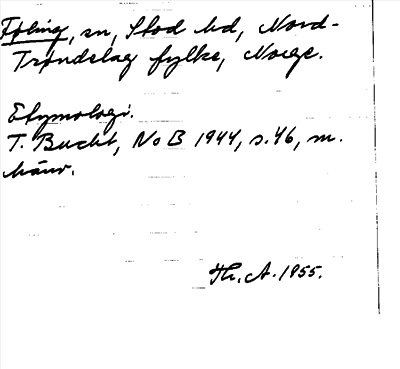 Føling, sn, Stod hd, Nord-
Trøndelag fylke, Norge.
Etymologi.
T. Bucht, NoB 1944, s. 46, m.
hänv.
Th. A. 1955.